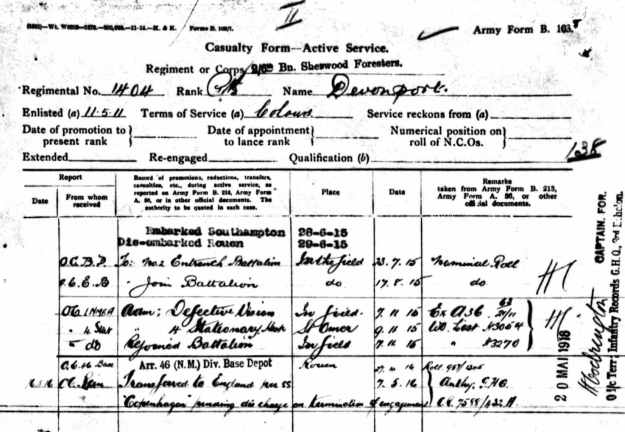 II
Forms B. 103/1
Army Form B. 103.
Casualty Form—Active Service.
Regiment or Corps Bn. Sherwood Foresters.
Regimental No. 1404 Rank Pte Name Devonport.
Enlisted (a) 11.5.11 Terms of Service (a) Colours Service reckons from (a)
Date of promotion to present rank } Date of appointment to lance rank } Numerical position on roll of N.C.Os. }
138
Extended Re-engaged Qualification (b)
Report
Date
From whom received
Record of promotions, reductions, transfers, casualties, etc., during active service, as reported on Army Form B. 213, Army Form A. 36, or in other official documents. The authority to be quoted in each case.
Place
Date
Remarks taken from Army Form B. 213, Army Form A. 36, or other official documents.
Embarked Southampton 28-6-15
Dis-embarked Rouen 29-6-15
To: No 2 Entrench Battalion In the field 23.7.15 Nominal Roll
Join Battalion do 17.8.15 do
Adm: Defective Vision In field 7.11.15 Ex A36
4 Stat 4 Stationary St Omer 9.11.15 List N3064
do Rejoined Battalion In field N3270
Arr. 46 (N.M.) Div. Base Depot Rouen
Transferred to England per SS 7.5.16
"Copenhagen" pending discharge on termination of engagement
20 MAI 1918
CAPTAIN. FOR.
O i/c Terr. Infantry Records G.H.Q. 3rd Echelon.